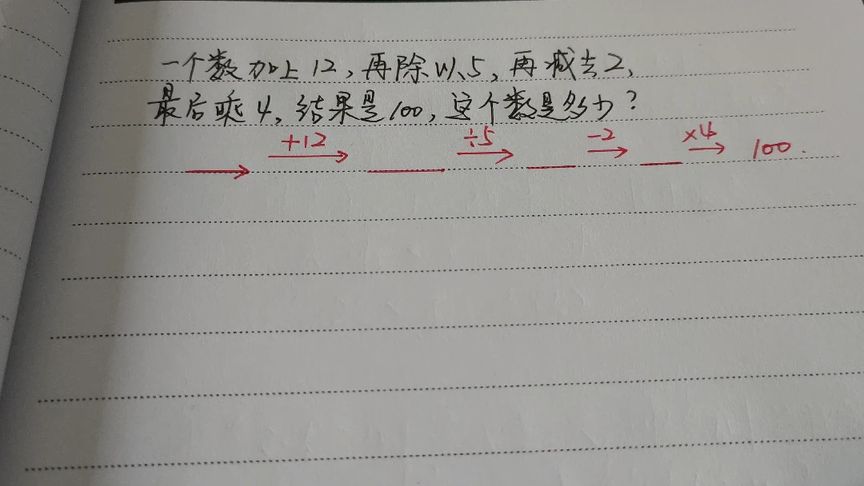 一个数加上12,再除以5,再减去2,
最后乘4,结果是100,这个数是多少?
+12 ÷5 -2 ×4 100.